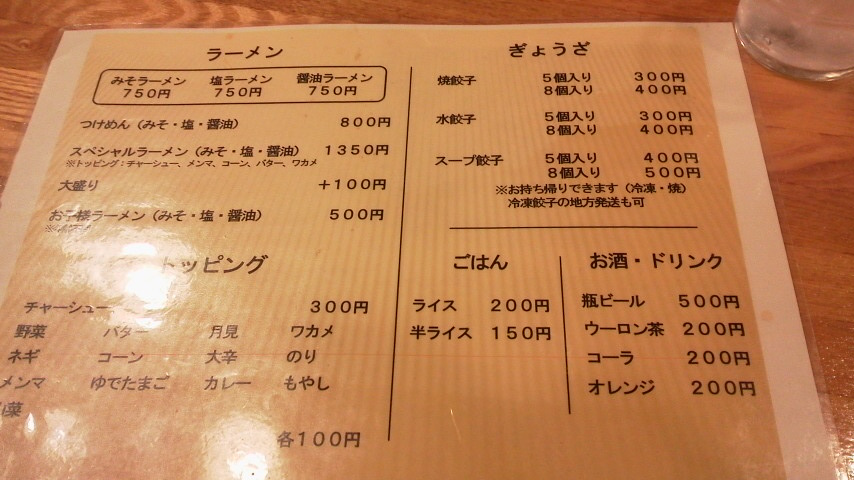 ラーメン
みそラーメン 塩ラーメン 醤油ラーメン
750円 750円 750円
つけめん（みそ・塩・醤油） 800円
スペシャルラーメン（みそ・塩・醤油） 1350円
※トッピング：チャーシュー、メンマ、コーン、バター、ワカメ
大盛り +100円
お子様ラーメン（みそ・塩・醤油） 500円
トッピング
チャーシュー 300円
野菜 バター 月見 ワカメ
ネギ コーン 大辛 のり
メンマ ゆでたまご カレー もやし
菜
各100円
ぎょうざ
焼餃子 5個入り 300円
8個入り 400円
水餃子 5個入り 300円
8個入り 400円
スープ餃子 5個入り 400円
8個入り 500円
※お持ち帰りできます（冷凍・焼）
冷凍餃子の地方発送も可
ごはん
ライス 200円
半ライス 150円
お酒・ドリンク
瓶ビール 500円
ウーロン茶 200円
コーラ 200円
オレンジ 200円